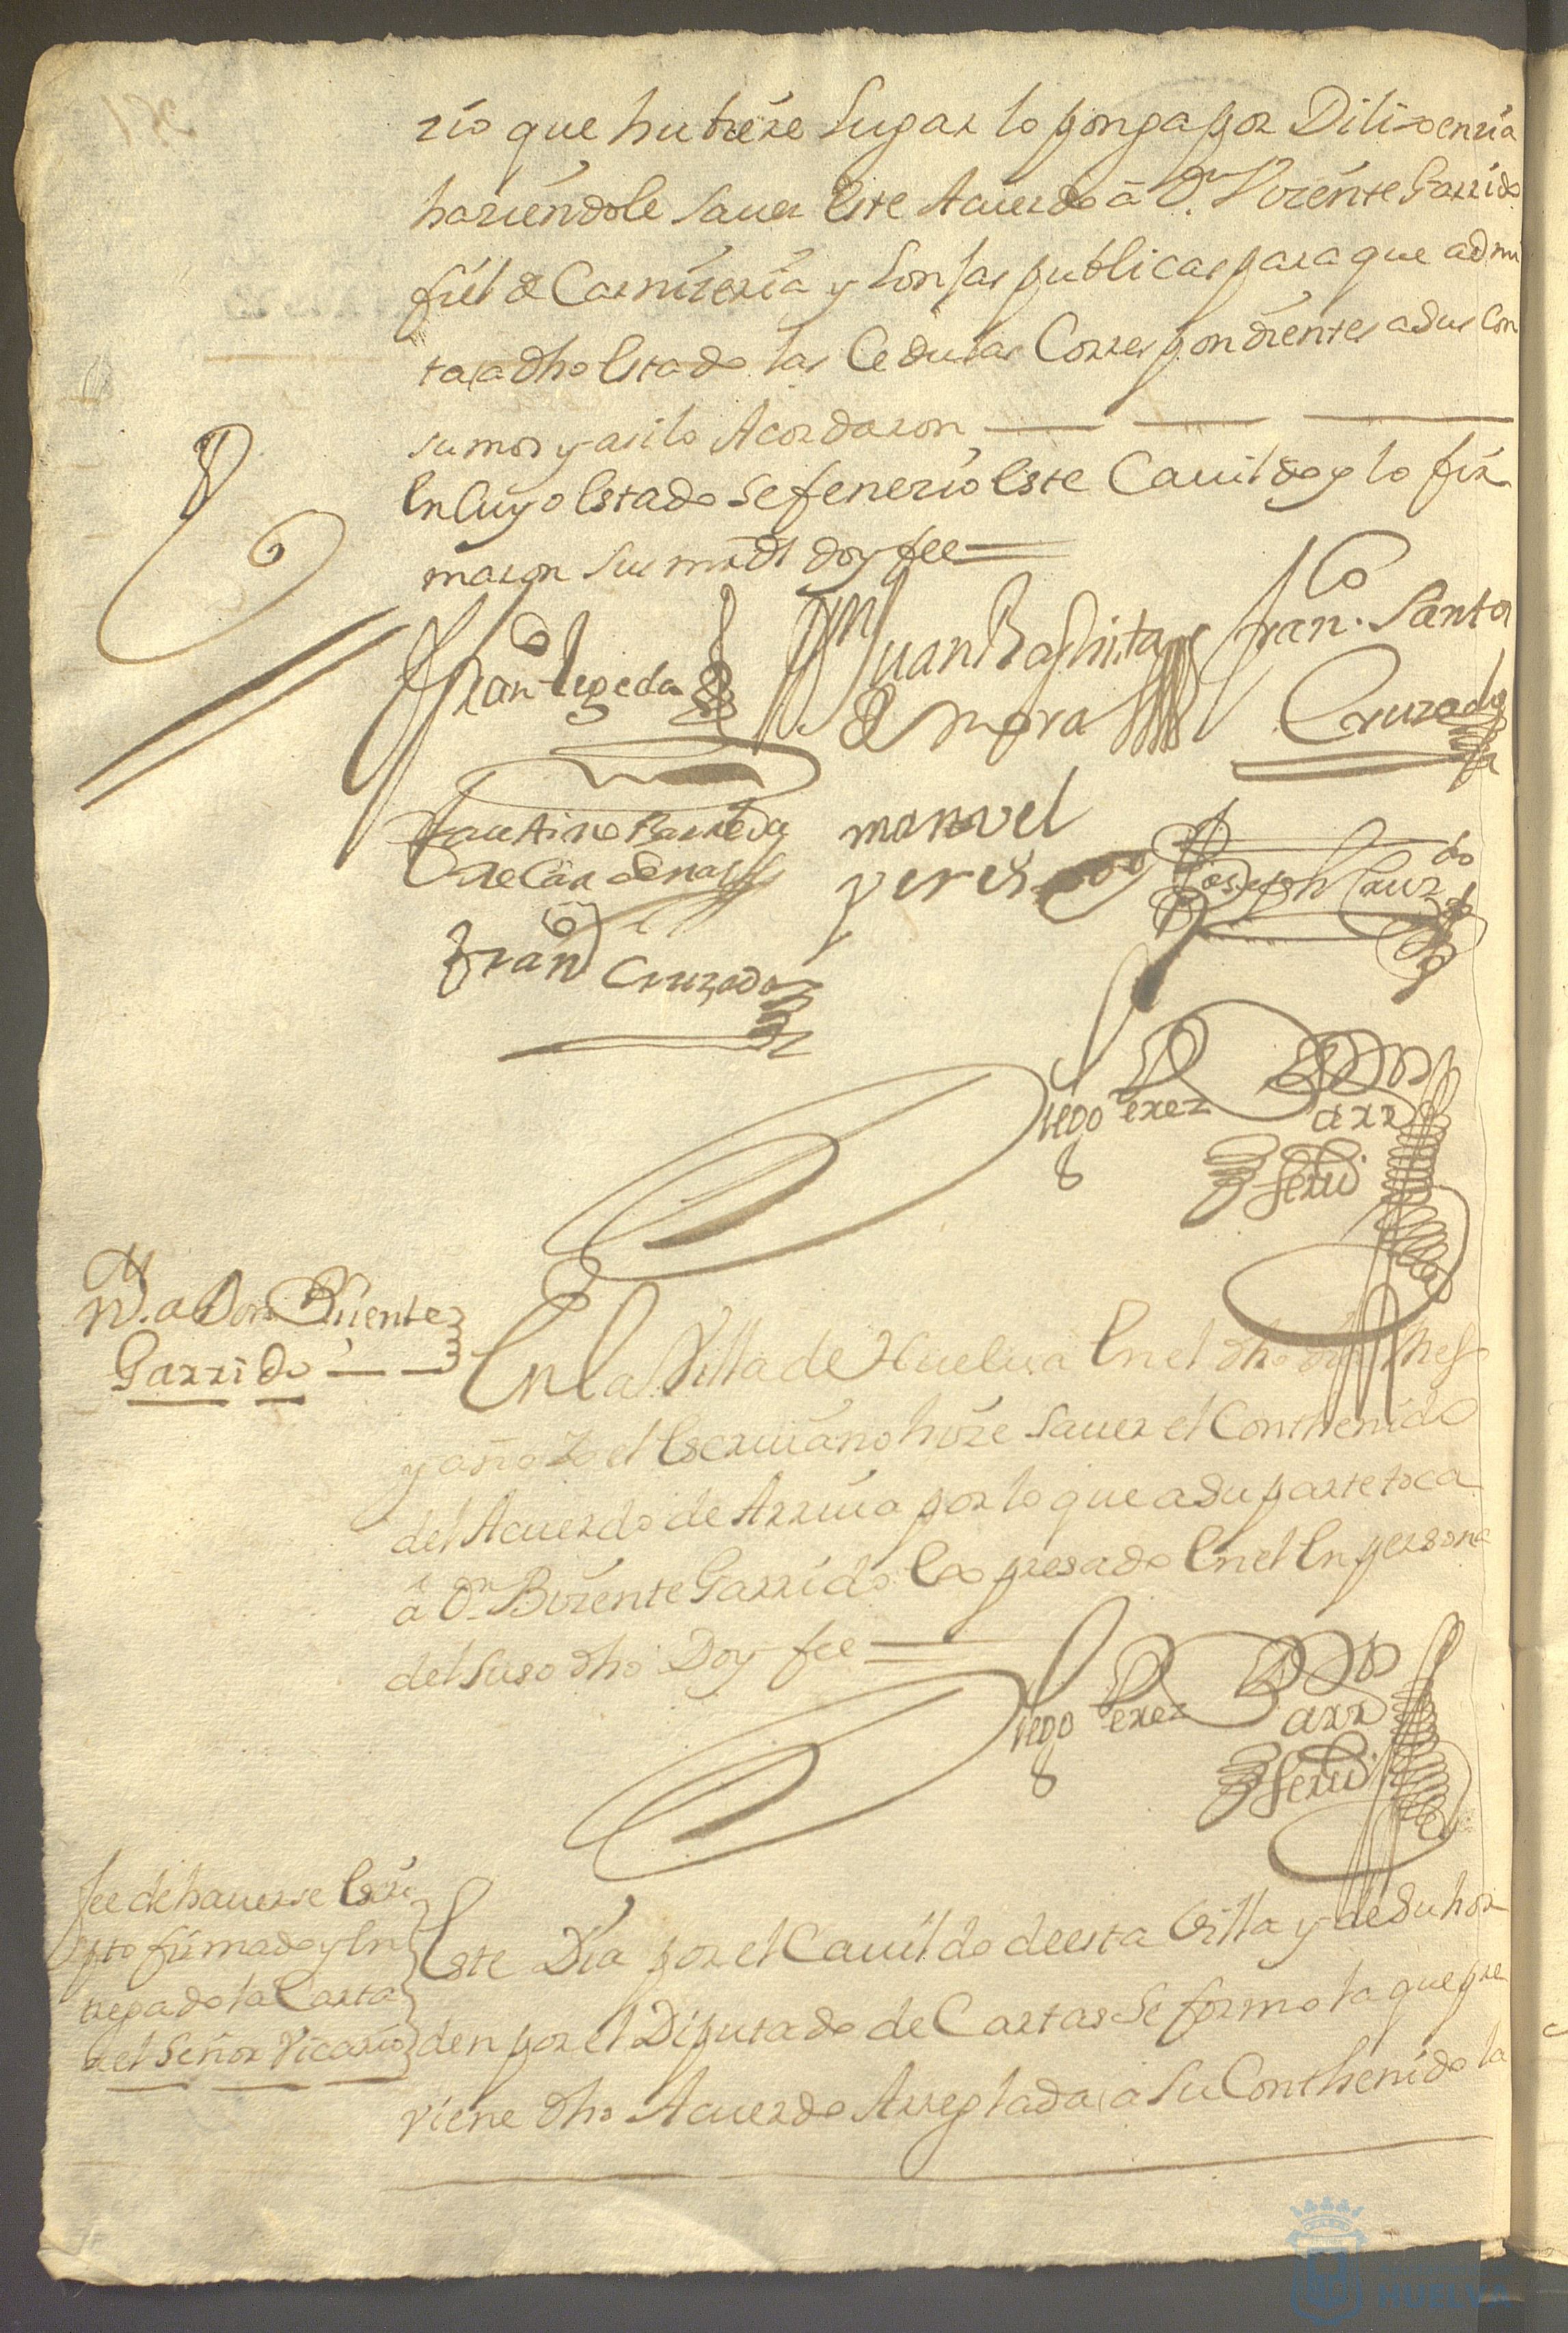 rio que hubiere Lugar lo ponga por Dilixencia
haziendole saver este Acuerdo â Dn. Vizente Garrido
fiel de Carnizeria y Lonjas publicas para que admi
ta a dho estado las Cedulas Correspondientes a sus Con
sumos y asi lo Acordaron
En Cuyo estado se fenezio este Cavildo y lo fir
maron sus mrds doy fee
Juan Baptista Franco. Santos
de mora Cruzado
Faustino
de Cardenas
manuel
perez
Joseph Cruzdo
Franco Cruzado
Diego Perez
Not. a Don Vizente
Garrido
En la Villa de Huelva En el dho dia Mes
y año Yo el Escrivano hize saver el Conthenido
del Acuerdo de Arriva por lo que a su parte toca
a Dn. Bizente Garrido Expresado En el En persona
del suso dho Doy fee
Diego Perez
fee de haverse Escri
pto firmado y En
tregado la Carta
a el Señor Vicario
Este Dia por el Cavildo de esta Villa y de su hor
den por el Diputado de Cartas se formo la que pre
viene dho Acuerdo Arreglada a su Conthenido la
HUELVA